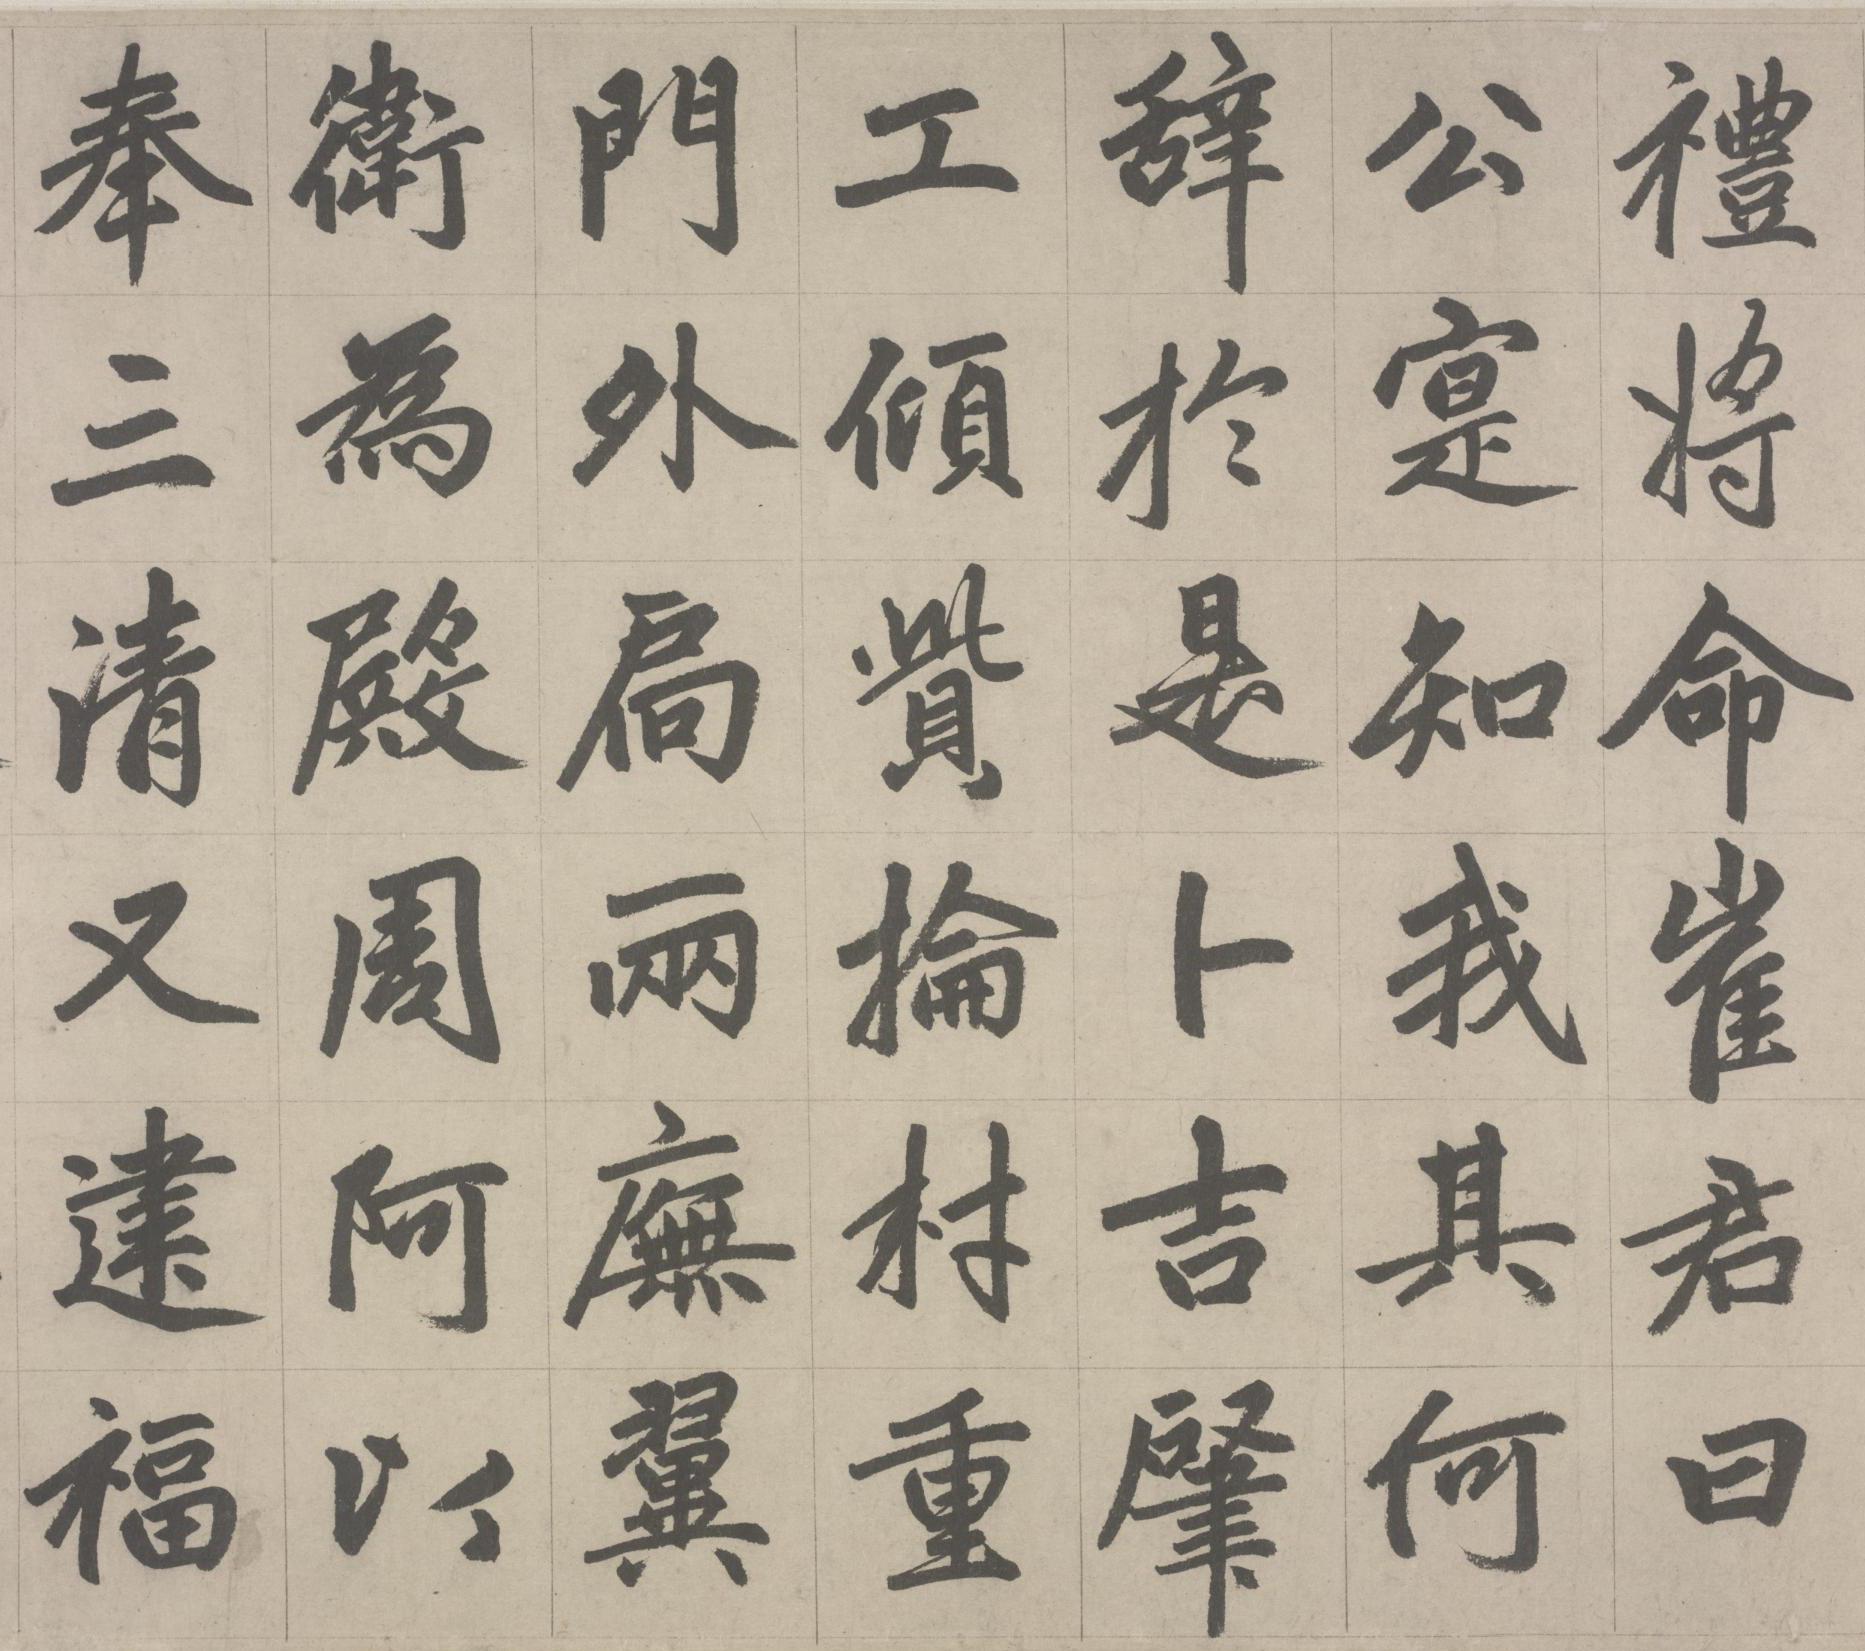 禮將命崔君曰
公寔知我其何
辭於是卜吉肇
工傾貲掄材重
門外扃兩廡翼
衛為殿周阿以
奉三清又建福